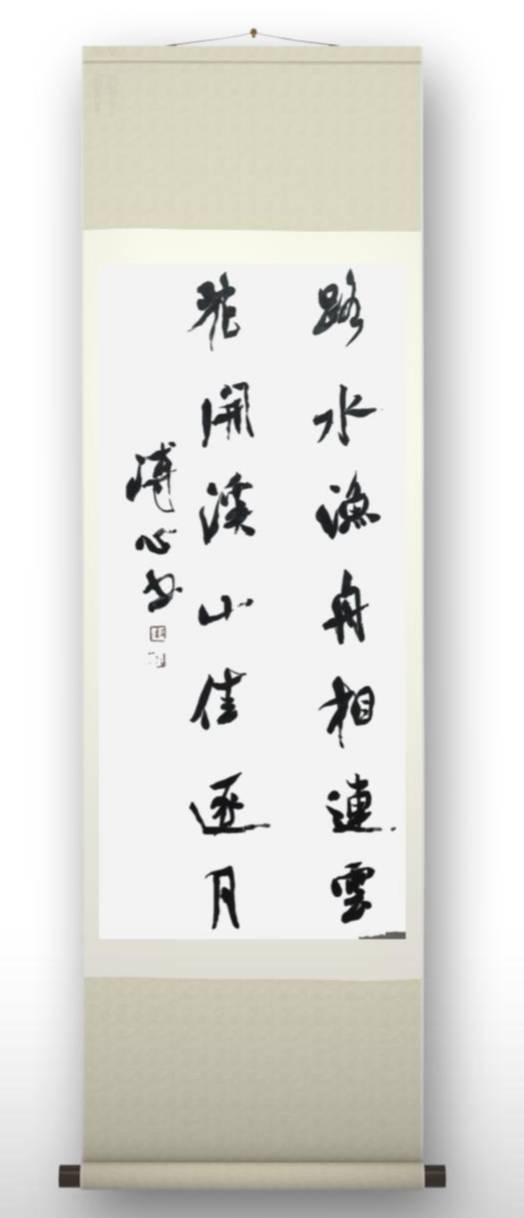 路水漁舟相連雲
開溪山佳逐月
溥心书